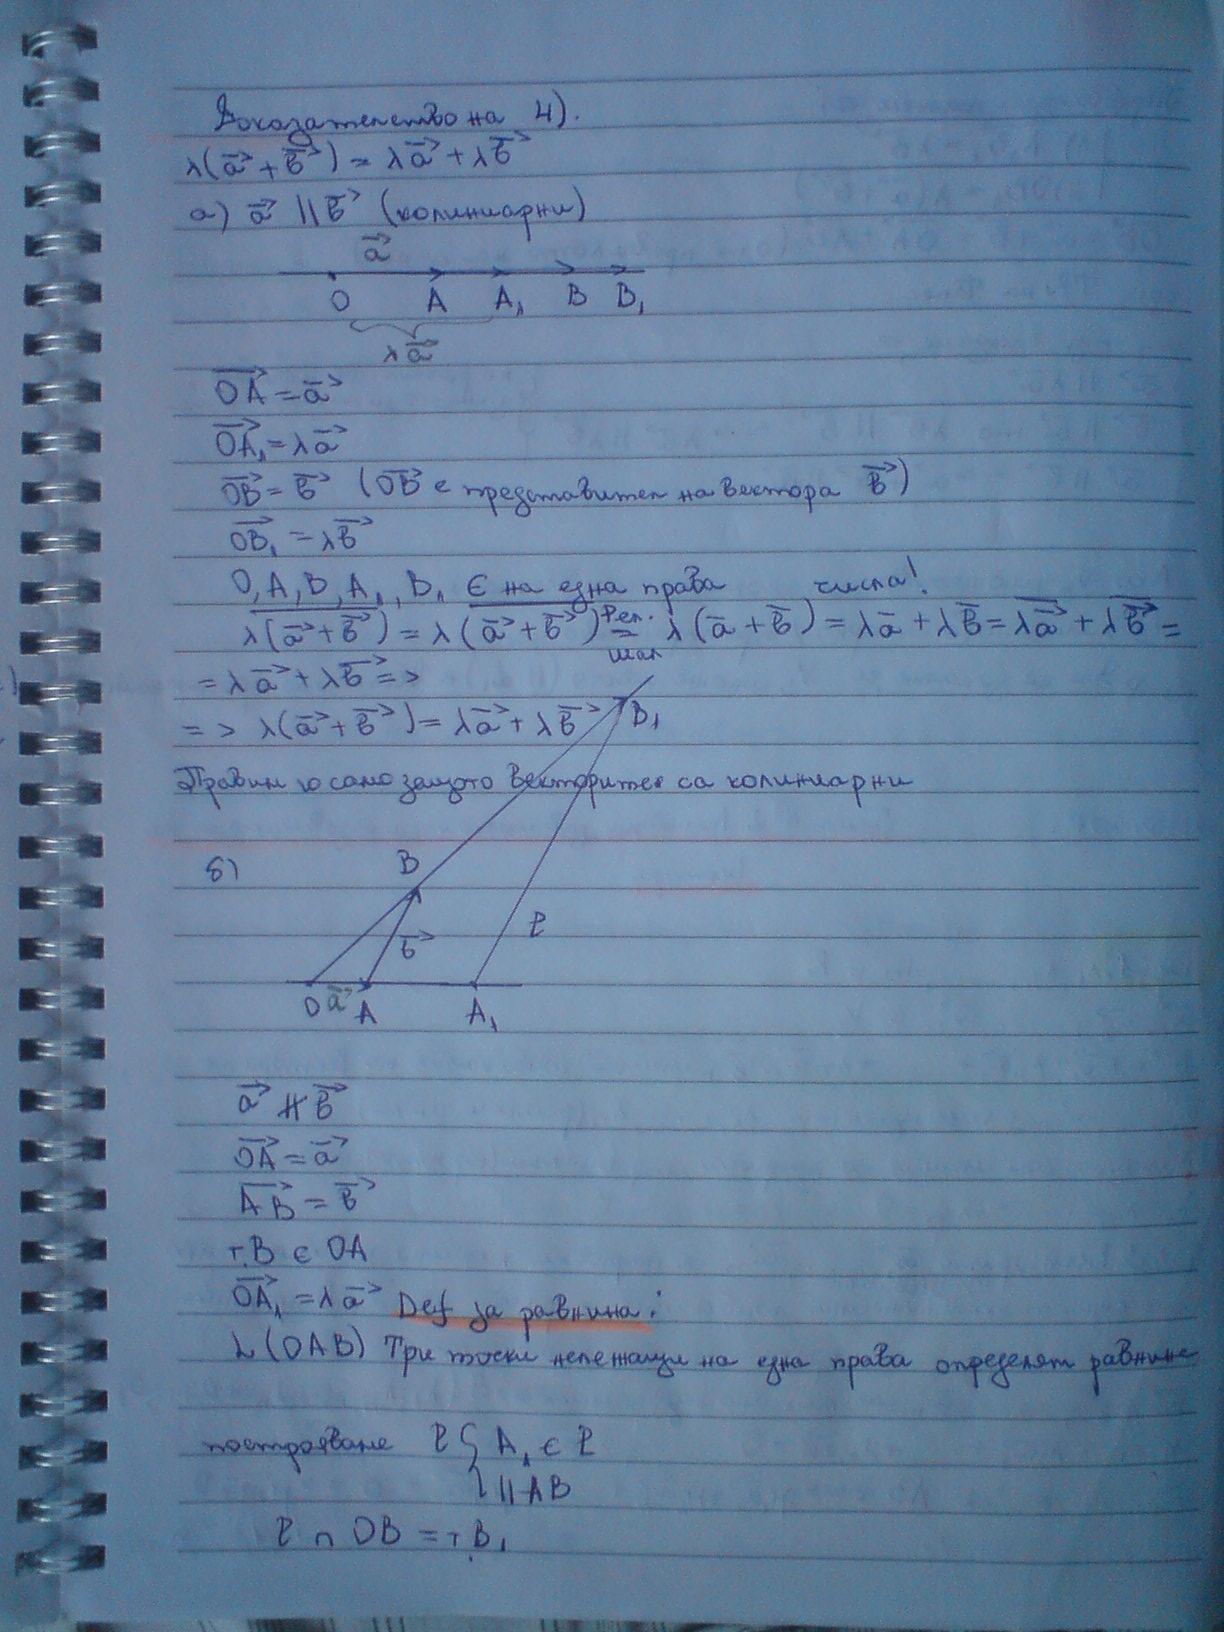 Доказателство на 4).
λ(a⃗ + b⃗) = λa⃗ + λb⃗
а) a⃗ || b⃗ (колиниарни)
a⃗
O A A₁ B B₁
λa⃗
OA⃗ = a⃗
OA₁⃗ = λa⃗
OB⃗ = b⃗ (OB⃗ е представител на вектора b⃗)
OB₁⃗ = λb⃗
O, A, B, A₁, B₁ ∈ на една права числа!
λ(a⃗ + b⃗) = λ(a⃗ + b⃗) = λ(a̅ + b̅) = λa̅ + λb̅ = λa⃗ + λb⃗ =
= λa⃗ + λb⃗ =>
=> λ(a⃗ + b⃗) = λa⃗ + λb⃗
B₁
Правим го само защото векторите са колиниарни
б)
B
b⃗ ℓ
O a⃗ A A₁
a⃗ ∦ b⃗
OA⃗ = a⃗
AB⃗ = b⃗
т.B ∈ OA
OA₁⃗ = λa⃗ Def за равнина:
λ(OAB) Три точки нележащи на една права определят равнина
построяване ℓ { A₁ ∈ ℓ
|| AB
ℓ ∩ OB = т.B₁